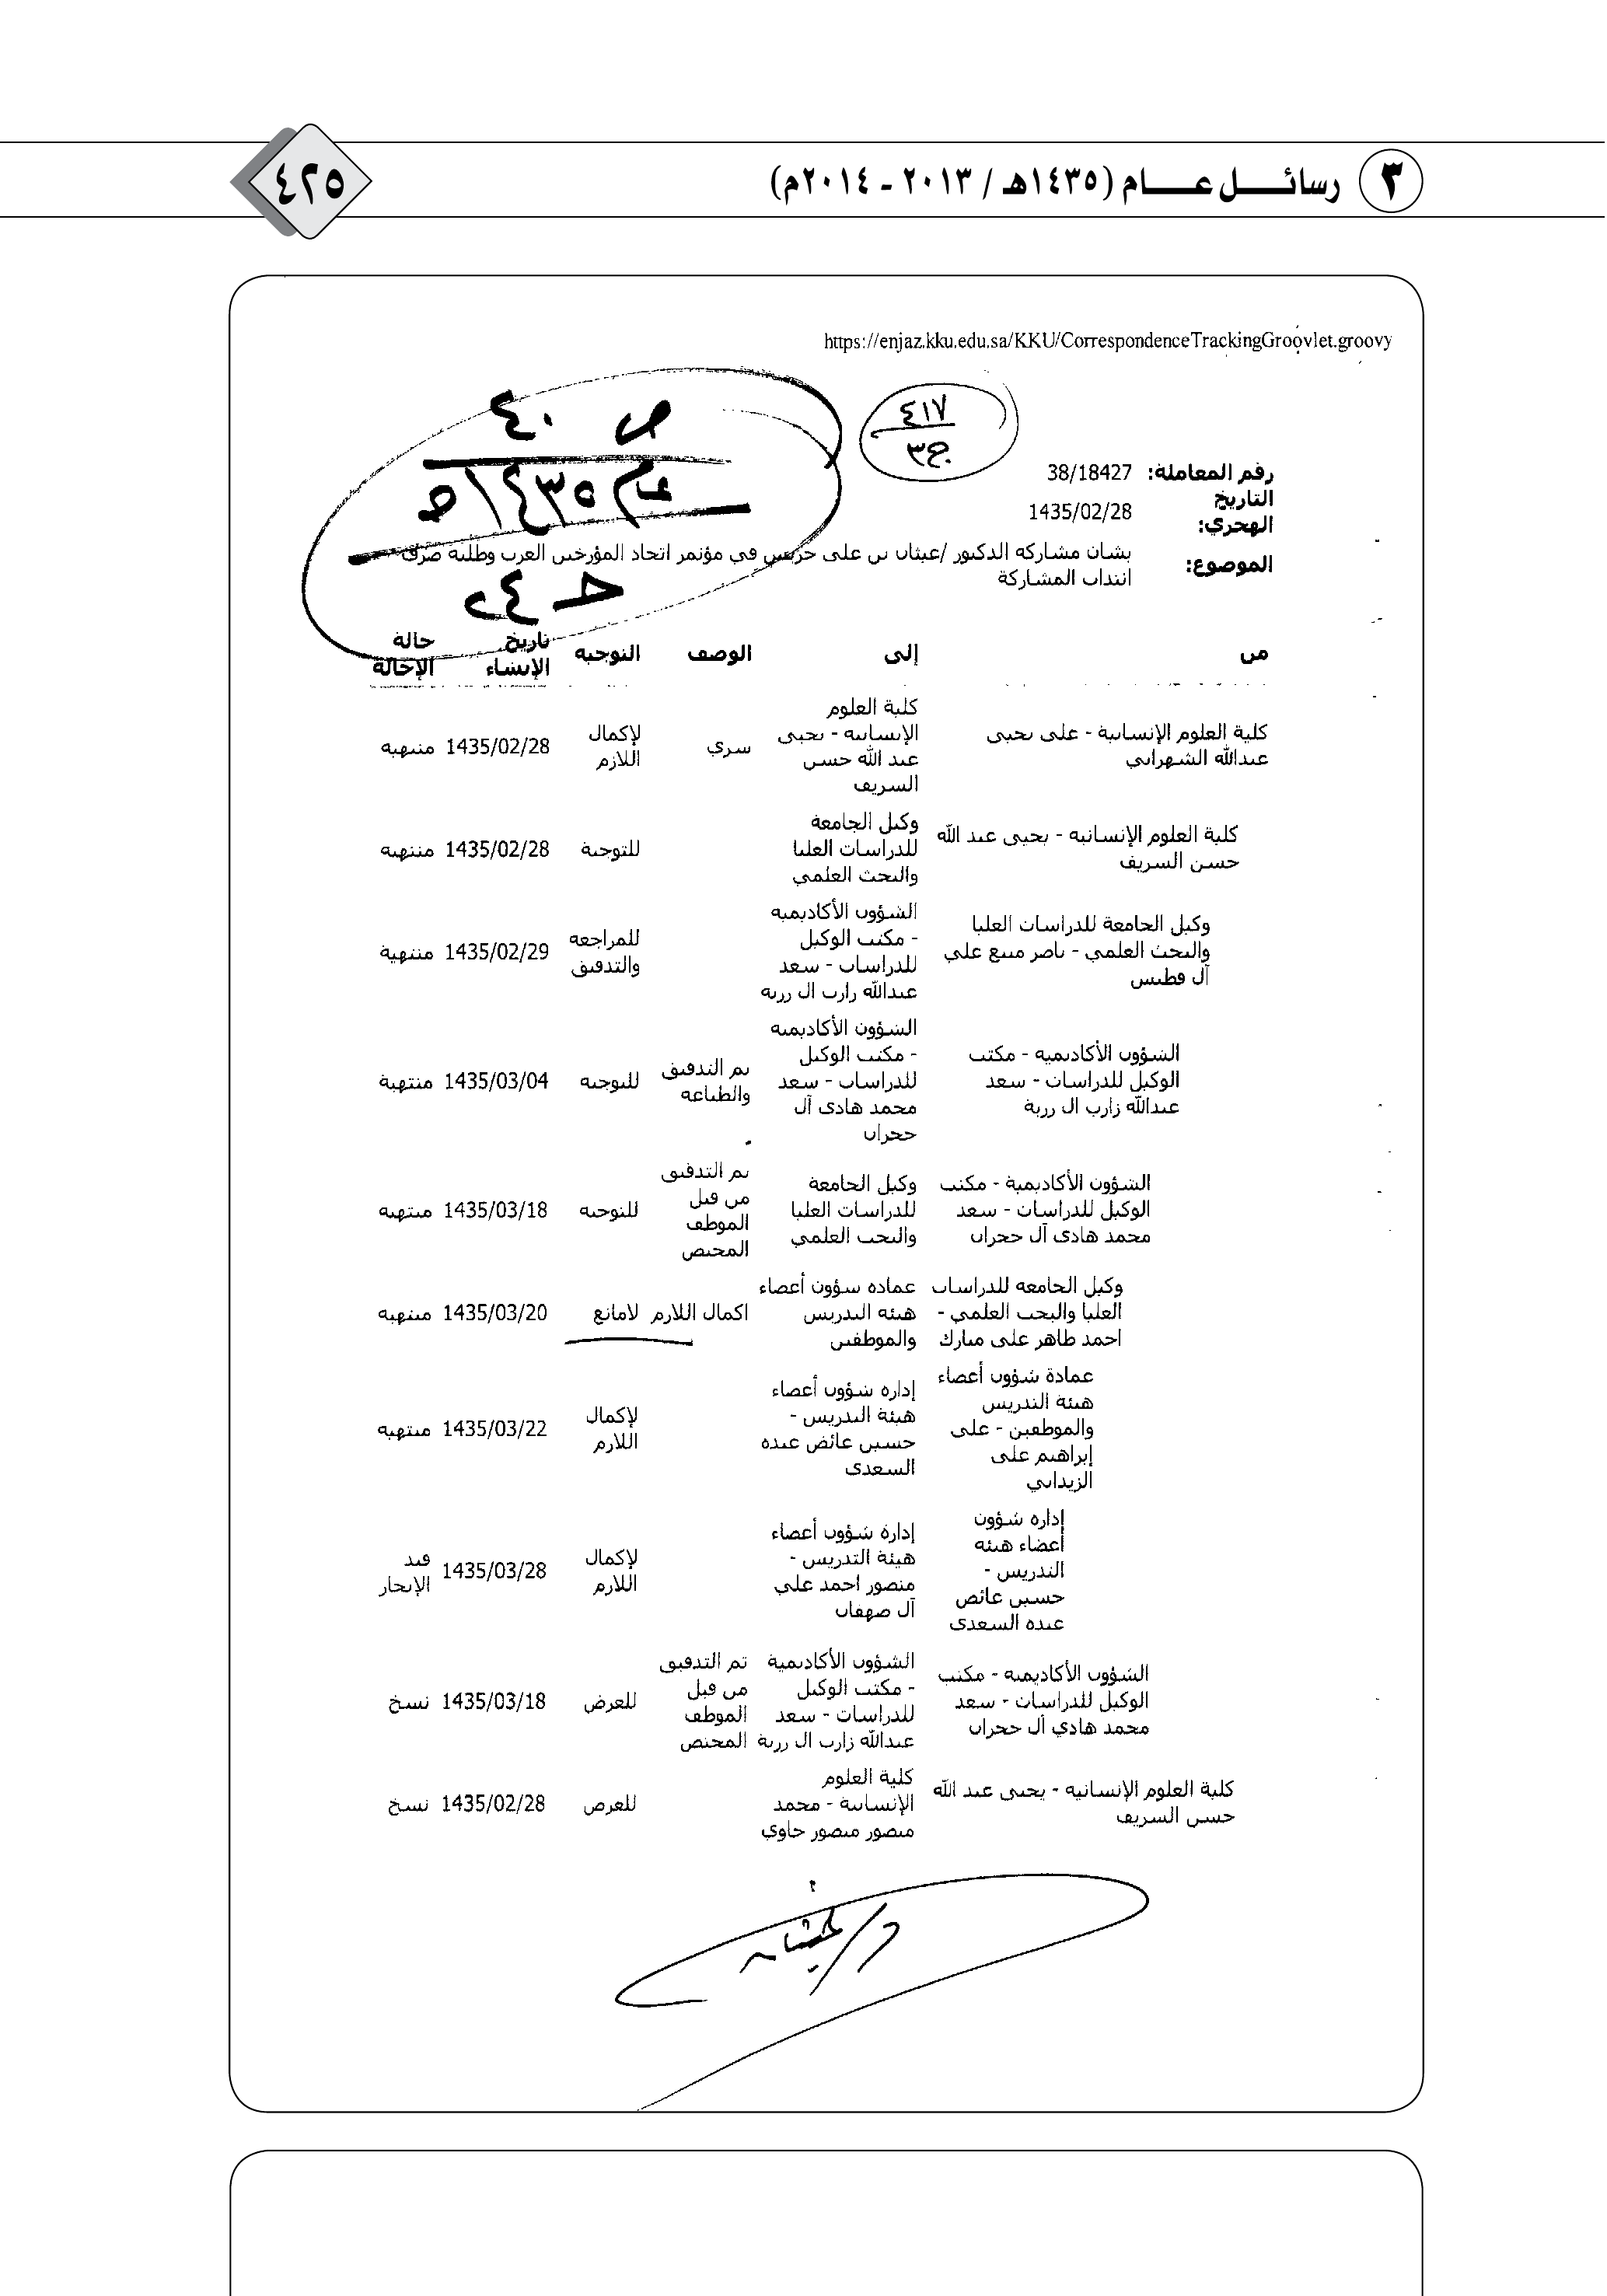 ٣ رسائل عام (١٤٣٥هـ / ٢٠١٣ - ٢٠١٤م)
٤٢٥
https://enjaz.kku.edu.sa/KKU/CorrespondenceTrackingGroovlet.groovy
ص ٤٠
عام ١٤٣٥هـ
٤١٧
ج٣
رقم المعاملة: 38/18427
التاريخ
الهجري: 1435/02/28
الموضوع: بشان مشاركه الدكتور /غيثان بن علي جريس في مؤتمر اتحاد المؤرخين العرب وطلبه صرف
انتداب المشاركة
من إلى الوصف التوجيه تاريخ الإنشاء حالة الإحالة
كلية العلوم الإنسانية - على يحيى
عبدالله الشهراني
كلية العلوم
الإنسانيه - يحيى
عبد الله حسن
الشريف
سري
لإكمال
اللازم
1435/02/28 منتهيه
كلية العلوم الإنسانيه - يحيى عبد الله
حسن الشريف
وكيل الجامعة
للدراسات العليا
والبحث العلمي
للتوجية
1435/02/28 منتهيه
وكيل الجامعة للدراسات العليا
والبحث العلمي - ناصر منيع علي
آل قطيس
الشؤون الأكاديميه
- مكتب الوكيل
للدراسات - سعد
عبدالله زارب ال رزبه
للمراجعه
والتدقيق
1435/02/29 منتهية
الشؤون الأكاديميه - مكتب
الوكيل للدراسات - سعد
عبدالله زارب ال رزبة
الشؤون الأكاديميه
- مكتب الوكيل
للدراسات - سعد
محمد هادى آل
حجران
تم التدقيق
والطباعه
للتوجيه
1435/03/04 منتهية
الشؤون الأكاديمية - مكتب
الوكيل للدراسات - سعد
محمد هادى آل حجران
وكيل الجامعة
للدراسات العليا
والبحث العلمي
تم التدقيق
من قبل
الموظف
المختص
للتوجيه
1435/03/18 منتهيه
وكيل الجامعه للدراسات
العليا والبحث العلمي -
احمد طاهر على مبارك
عماده شؤون أعضاء
هيئه التدريس
والموظفين
اكمال اللازم
لامانع
1435/03/20 منتهيه
عمادة شؤون أعضاء
هيئة التدريس
والموظفين - على
إبراهيم على
الزيداني
إداره شؤون أعضاء
هيئة التدريس -
حسين عائض عبده
السعدى
لإكمال
اللازم
1435/03/22 منتهيه
إداره شؤون
أعضاء هيئه
التدريس -
حسين عائض
عبده السعدى
إدارة شؤون أعضاء
هيئة التدريس -
منصور احمد علي
آل صهفان
لإكمال
اللازم
1435/03/28 قيد
الإنجاز
الشؤون الأكاديميه - مكتب
الوكيل للدراسات - سعد
محمد هادي آل حجران
الشؤون الأكاديمية
- مكتب الوكيل
للدراسات - سعد
عبدالله زارب ال رزبة
تم التدقيق
من قبل
الموظف
المختص
للعرض
1435/03/18 نسخ
كلية العلوم الإنسانيه - يحيى عبد الله
حسن الشريف
كلية العلوم
الإنسانية - محمد
منصور منصور حاوي
للعرض
1435/02/28 نسخ